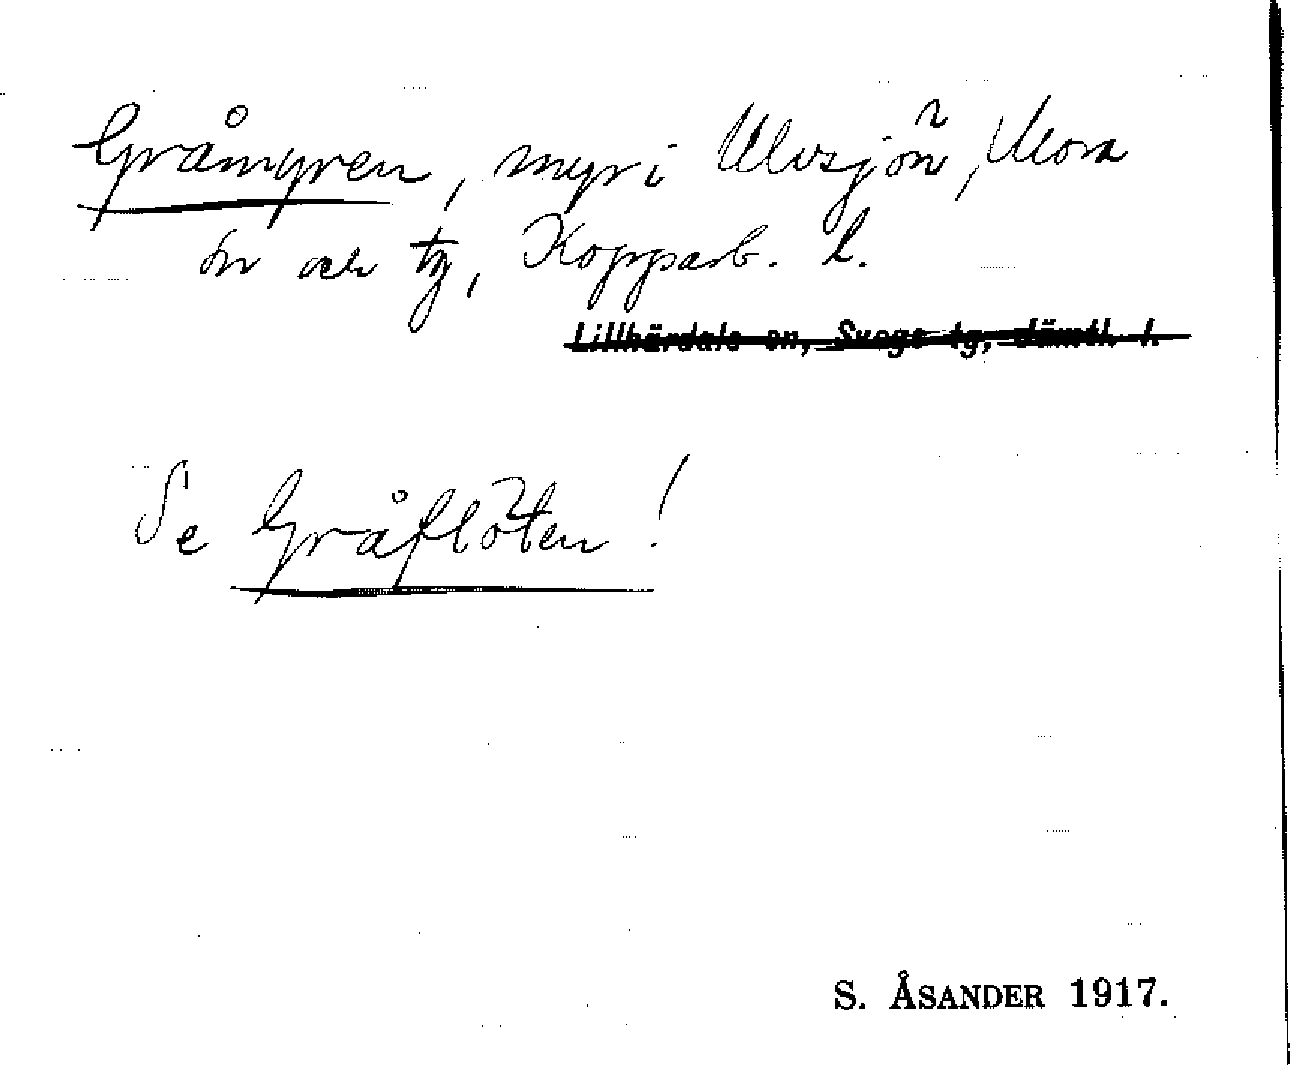 Gråmyren, myr i Ulvsjön, Mora
sn och tg, Kopparb. l.
Lillhärdals sn, Svegs tg, Jämtl. l.
Se Gråflöten!
S. ÅSANDER 1917.